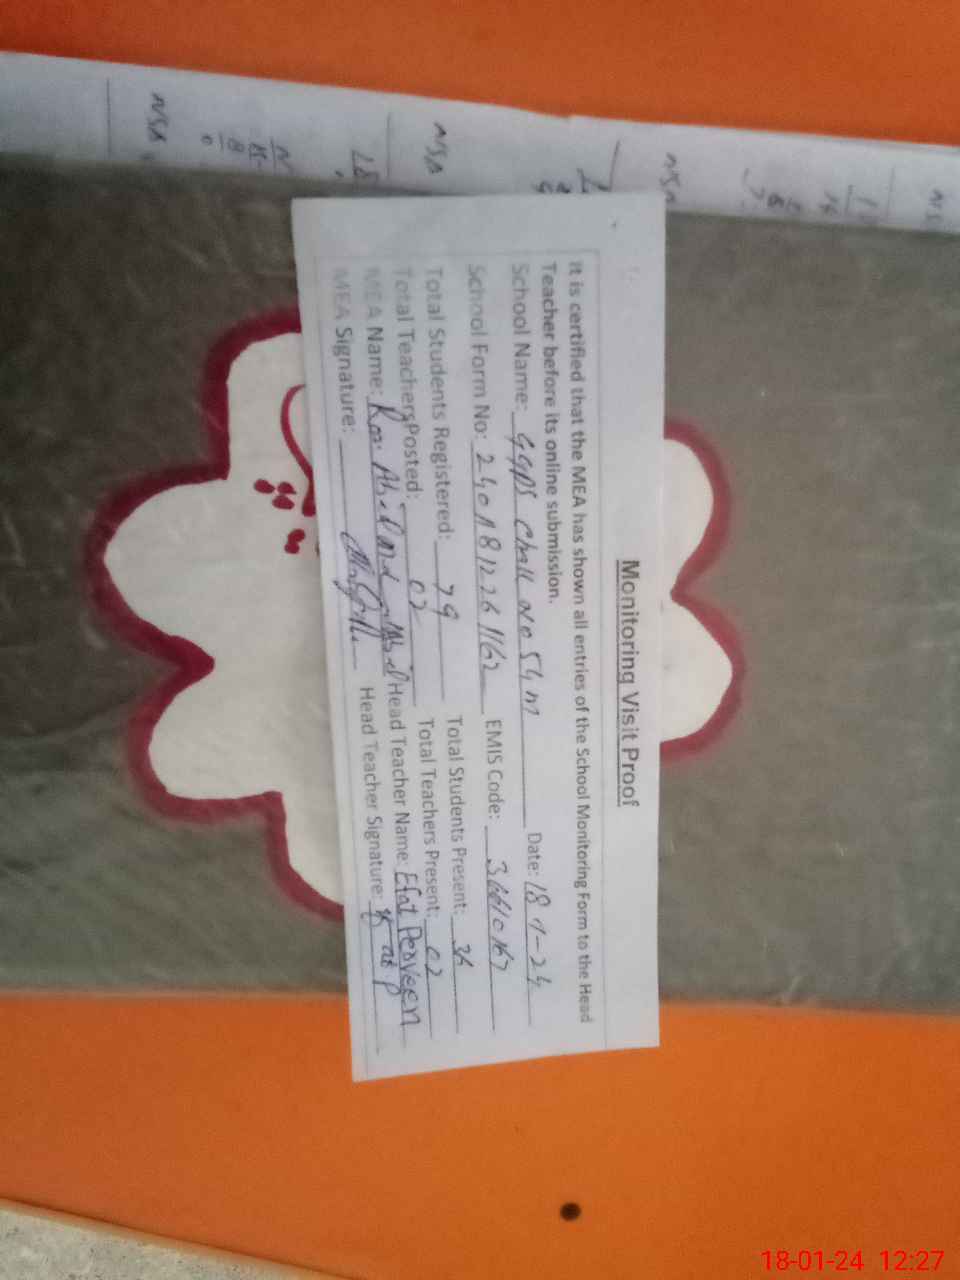 Monitoring Visit Proof
It is certified that the MEA has shown all entries of the School Monitoring Form to the Head
Teacher before its online submission.
School Name: GGPS Chak No 54 M Date: 18-1-24
School Form No: 2401812261162 EMIS Code: 36610167
Total Students Registered: 79 Total Students Present: 36
Total Teachers Posted: 02 Total Teachers Present: 02
MEA Name: Head Teacher Name: Efat Perveen
MEA Signature: Head Teacher Signature:
NSA
NSA
NSA
18-01-24 12:27